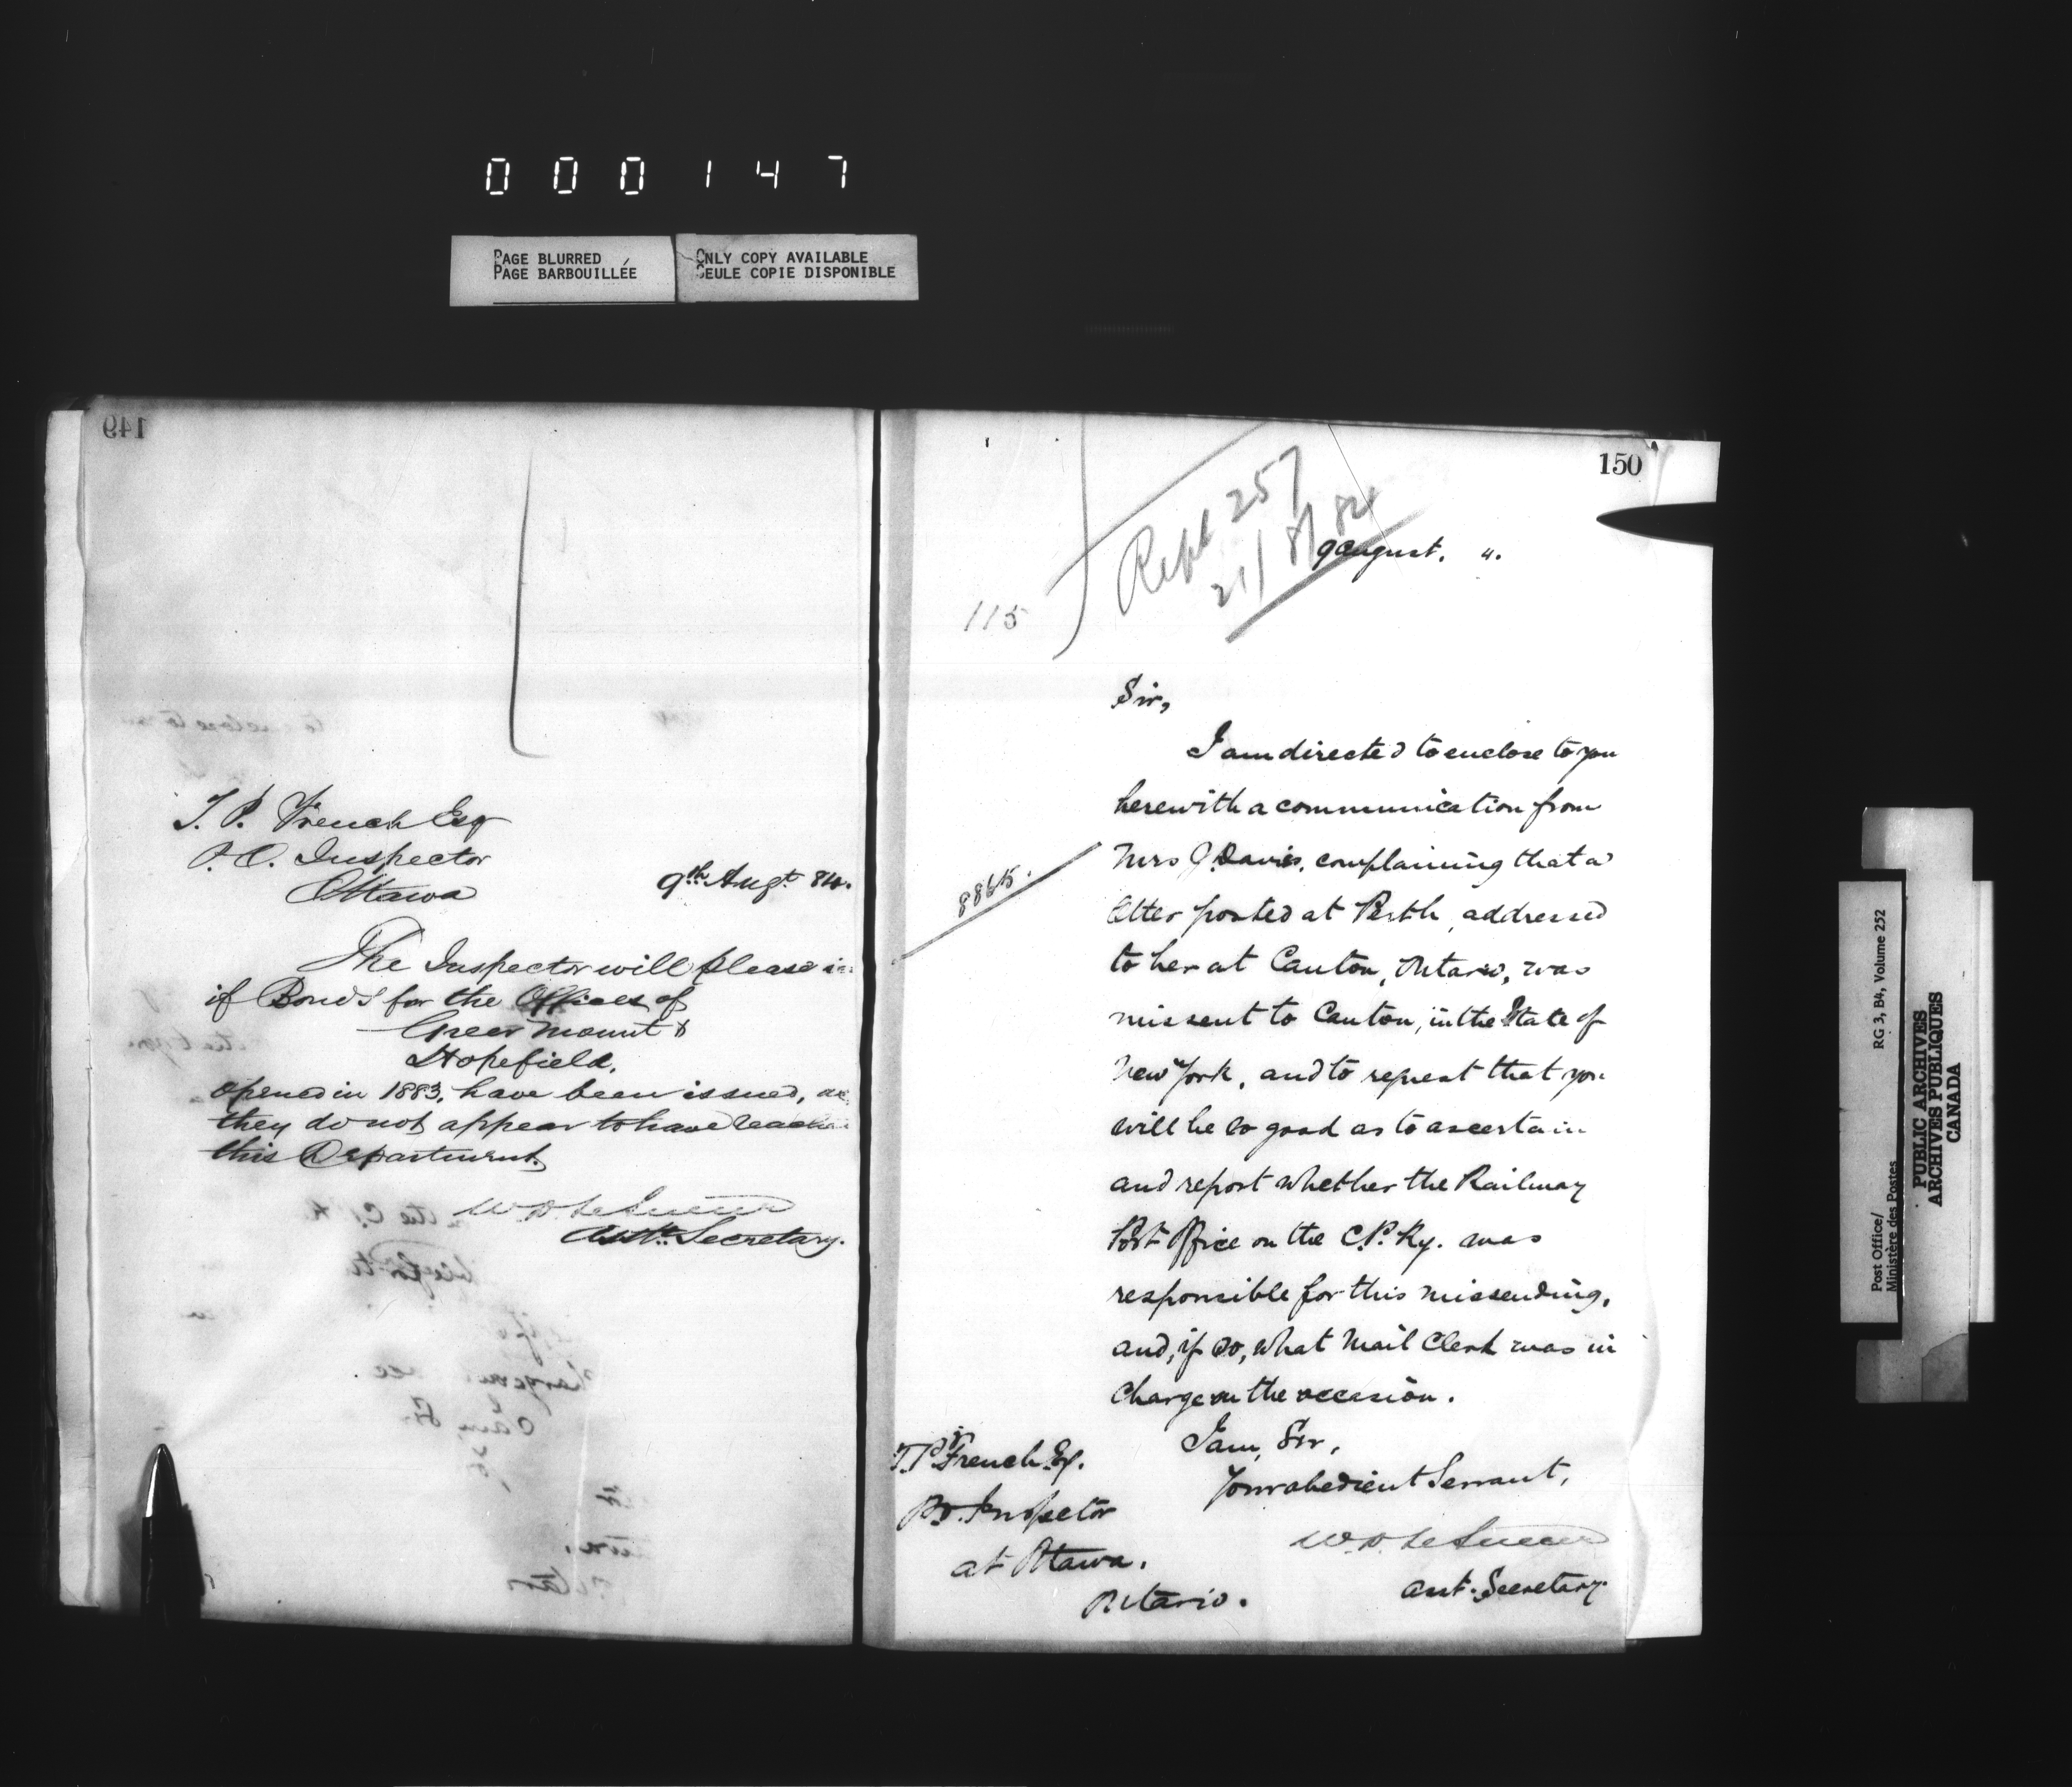 000147
PAGE BLURRED
PAGE BARBOUILLÉE
ONLY COPY AVAILABLE
SEULE COPIE DISPONIBLE
149
T. P. French Esq
P.O. Inspector
Ottawa
9th Augt 84.
The Inspector will please
if Bonds for the Offices of
Greer Mount &
Hopefield.
opened in 1883, have been issued, as
they do not appear to have
this Department.
W. D. LeSueur
Asst. Secretary.
150
Rept 257
21/8/84
9 August. 4.
115
Sir,
I am directed to enclose to you
herewith a communication from
Mrs J. Davis, complaining that a
8865.
letter posted at Perth, addressed
to her at Canton, Ontario, was
missent to Canton, in the State of
New York, and to request that you
will be so good as to ascertain
and report whether the Railway
Post Office on the C.P. Ry. was
responsible for this missending,
and, if so, what Mail Clerk was in
charge on the occasion.
I am, Sir,
Your obedient Servant,
W. D. LeSueur
Asst. Secretary.
T. P. French Esq.
P.O. Inspector
at Ottawa.
Ontario.
Post Office/
Ministère des Postes
RG 3, B4, Volume 252
PUBLIC ARCHIVES
ARCHIVES PUBLIQUES
CANADA